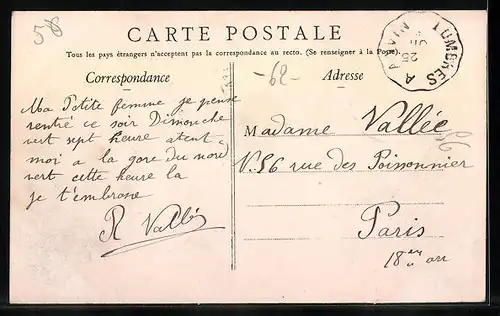 58
CARTE POSTALE
Tous les pays étrangers n'acceptent pas la correspondance au recto. (Se renseigner à la Poste).
Correspondance
-62-
Adresse
LUMBRES A ANVIN
25
Ma Petite femme je pense
rentré ce soir Dimanche
vert sept heure atent
moi a la gare du nord
vert cette heure la
je t'embrasse
R Vallée
Madame Vallée
N. 56 rue des Poissonnier
56
Paris
18 em arr